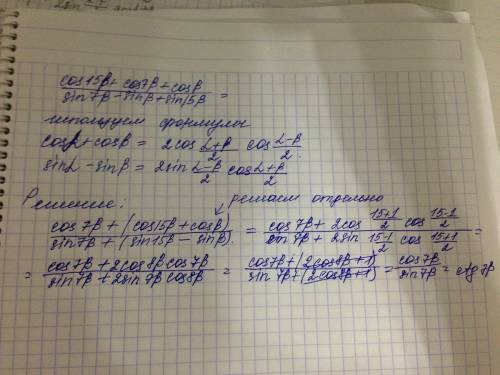 cos15β + cos7β + cosβ / sin7β - sinβ + sin15β =
используем формулы
cosα + cosβ = 2cos α+β/2 cos α-β/2.
sinα - sinβ = 2sin α-β/2 cos α+β/2
Решение: решаем отдельно
cos7β + (cos15β + cosβ) / sin7β + (sin15β - sinβ). = cos7β + 2cos 15+1/2 cos 15-1/2 / sin7β + 2sin 15-1/2 cos 15+1/2 =
= cos7β + 2cos8β cos7β / sin7β + 2sin7β cos8β = cos7β + (2cos8β+1) / sin7β + (2cos8β+1) = cos7β / sin7β = ctg7β